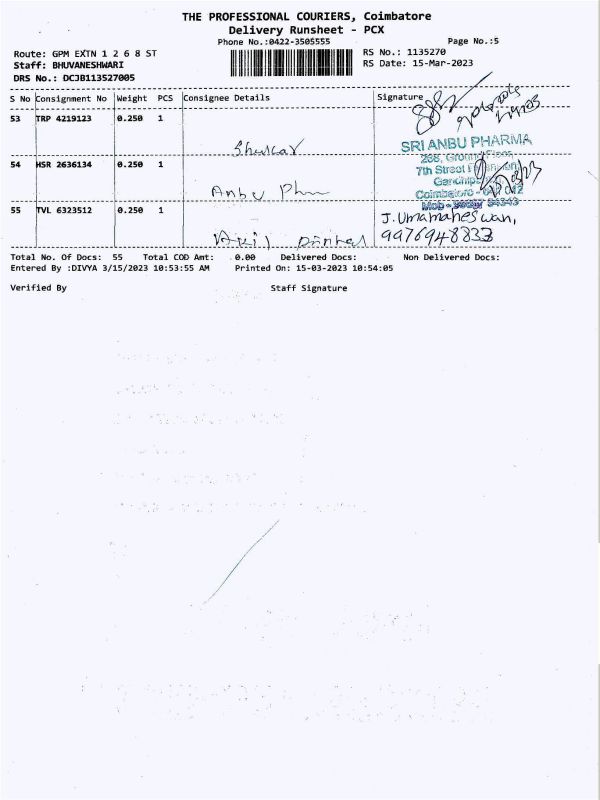 THE PROFESSIONAL COURIERS, Coimbatore
Delivery Runsheet - PCX
Phone No.:0422-3505555
Page No.:5
Route: GPM EXTN 1 2 6 8 ST
RS No.: 1135270
Staff: BHUVANESHWARI
RS Date: 15-Mar-2023
DRS No.: DCJB113527005
S No Consignment No Weight PCS Consignee Details Signature
53 TRP 4219123 0.250 1
54 HSR 2636134 0.250 1 Anbu
55 TVL 6323512 0.250 1
SRI ANBU PHARMA
7th Street
Coimbatore
J. Umamaheswari,
Total No. Of Docs: 55 Total COD Amt: 0.00 Delivered Docs: Non Delivered Docs:
Entered By :DIVYA 3/15/2023 10:53:55 AM Printed On: 15-03-2023 10:54:05
Verified By Staff Signature